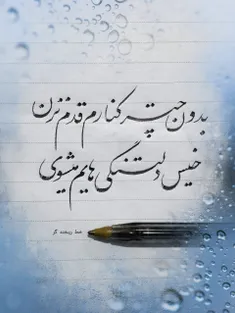 بدون چتر کنارم قدم نزن
خیس دلتنگی هایم میشوی